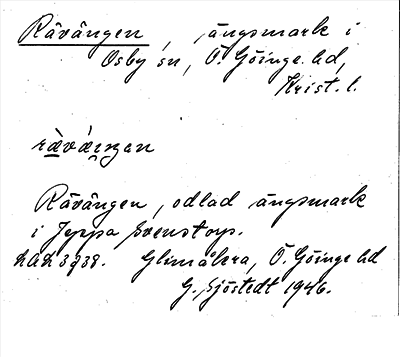 Rävängen, ängsmark i
Osby sn, Ö. Göinge hd,
Krist. l.
Rävängen, odlad ängsmark
i Jeppa Svenstorp.
Glimåkra, Ö. Göinge hd
G. Sjöstedt 1946.